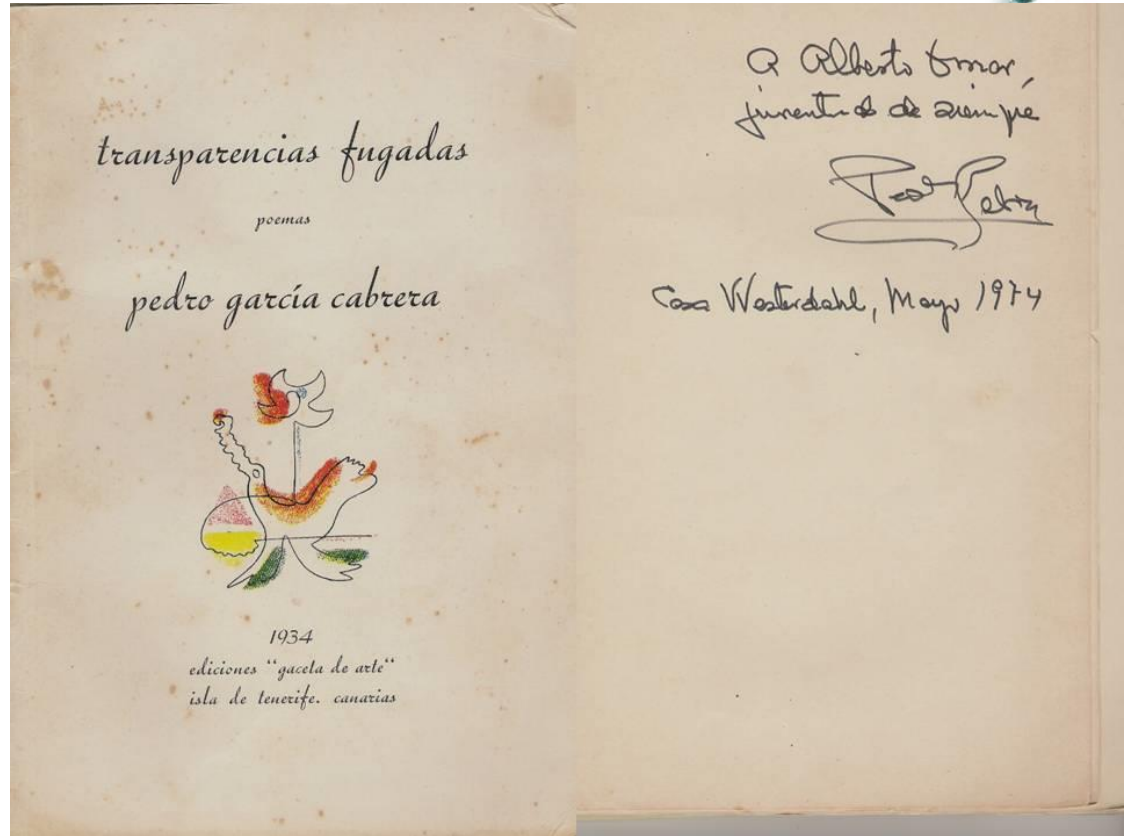 transparencias fugadas
poemas
pedro garcía cabrera
1934
ediciones "gaceta de arte"
isla de tenerife. canarias
A Alberto Omar,
juventud de siempre
Casa Westerdahl, Mayo 1974